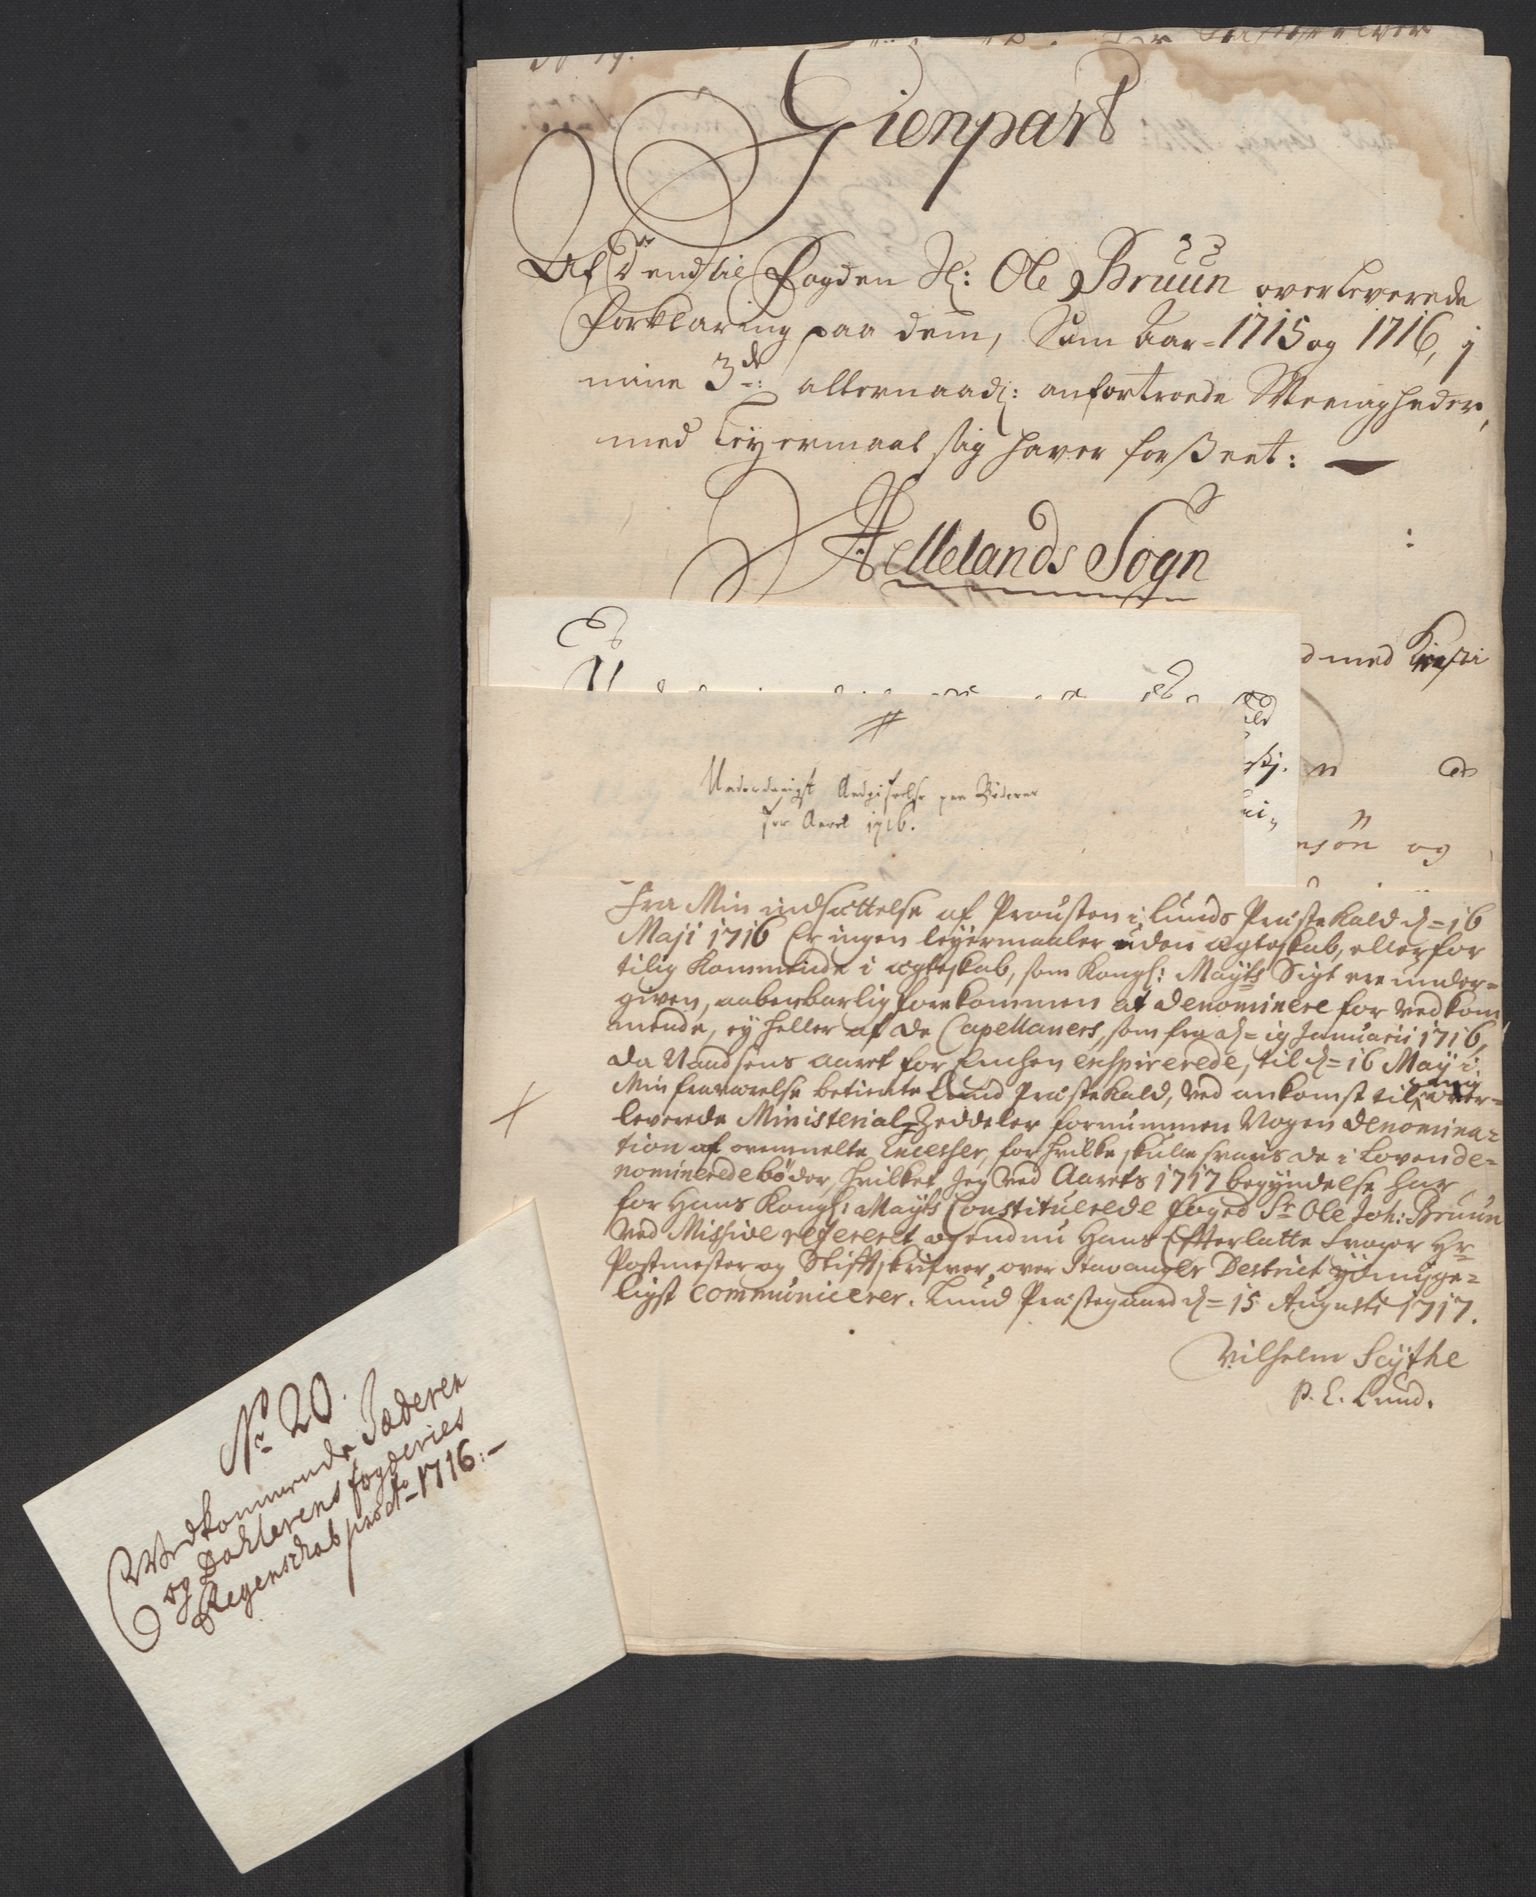 Gienpart
Af den til Fogden Sl: Ole Bruun overleverede
forklaring paa dem, Som Aar = 1715 og 1716, j
mine 3de: allernaadj: anfortroede Meenigheder,
med Leyermaal sig hafver forßeet:
Hellelands Sogn
d med Kirsti
n
nsøn og
Underdanigst Andgifvelse paa Bøderne
for Aaret 1716.
Fra Min indsættelse af Prousten i Lunds Præstekald d = 16
Maji 1716 Er ingen leyermaaler uden ægteskab, eller for
tilig kommende i ægteskab, som Kongl: Maÿts Sigt ere under=
given, aabenbarlig forekommen at denominere for vedkom
mende, ey heller af de Capellaner, som fra d = 19 Januarii 1716,
da Naadsens aaret for Enchen expirerede, til d = 16 Maÿ i
Min fraværelse betiente Lund Præstekald, ved ankomst til mig over=
leverede Ministerial-Zeddeler fornummen Nogen denomina=
tion af ommelte Excesser, for hvilke skulle svares de i Loven de=
nominerede bøder, hvilket Jeg ved Aarets 1717 begyndelse har
for Hans Kongl: Maÿts Constituerede foged Sr Ole Joh: Bruun
ved Missive refereret og endnu Hans Efterlatte Svoger Hr
Postmester og Stiftskrifver over Stavanger District ydmyge=
ligst communicerer. Lund Præstegaard d = 15 Augusti 1717.
Vilhelm Scÿthe
P. L. Lund.
No 20.
Vedkommende Jæderen
og Dahlerens fogderies
Regenskab pro Ao 1716:-